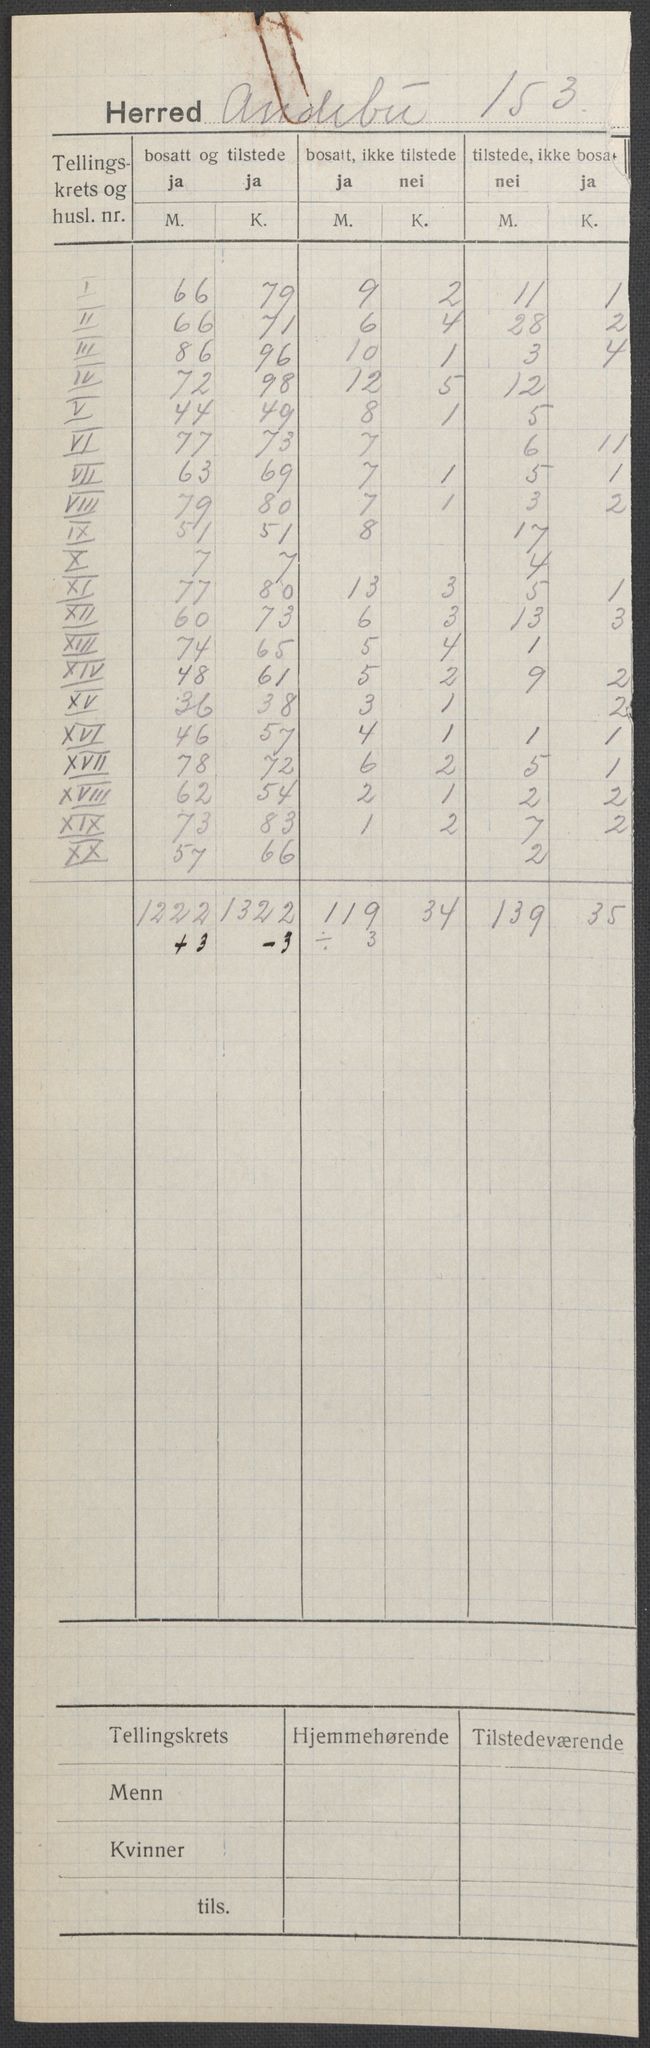 Herred Andebu 153
Tellings- bosatt og tilstede bosatt, ikke tilstede tilstede, ikke bosa
krets og ja ja ja nei nei ja
husl. nr. M. K. M. K. M. K.
I 66 79 9 2 11 1
II 66 71 6 4 28 2
III 86 96 10 1 3 4
IV 72 98 12 5 12
V 44 49 8 1 5
VI 77 73 7 6 11
VII 63 69 7 1 5 1
VIII 79 80 7 1 3 2
IX 51 51 8 17
X 7 7 4
XI 77 80 13 3 5 1
XII 60 73 6 3 13 3
XIII 74 65 5 4 1
XIV 48 61 5 2 9 2
XV 36 38 3 1 2
XVI 46 57 4 1 1 1
XVII 78 72 6 2 5 1
XVIII 62 54 2 1 2 2
XIX 73 83 1 2 7 2
XX 57 66 2
1222 1322 119 34 139 35
+3 -3 ÷ 3
Tellingskrets Hjemmehørende Tilstedeværende
Menn
Kvinner
tils.